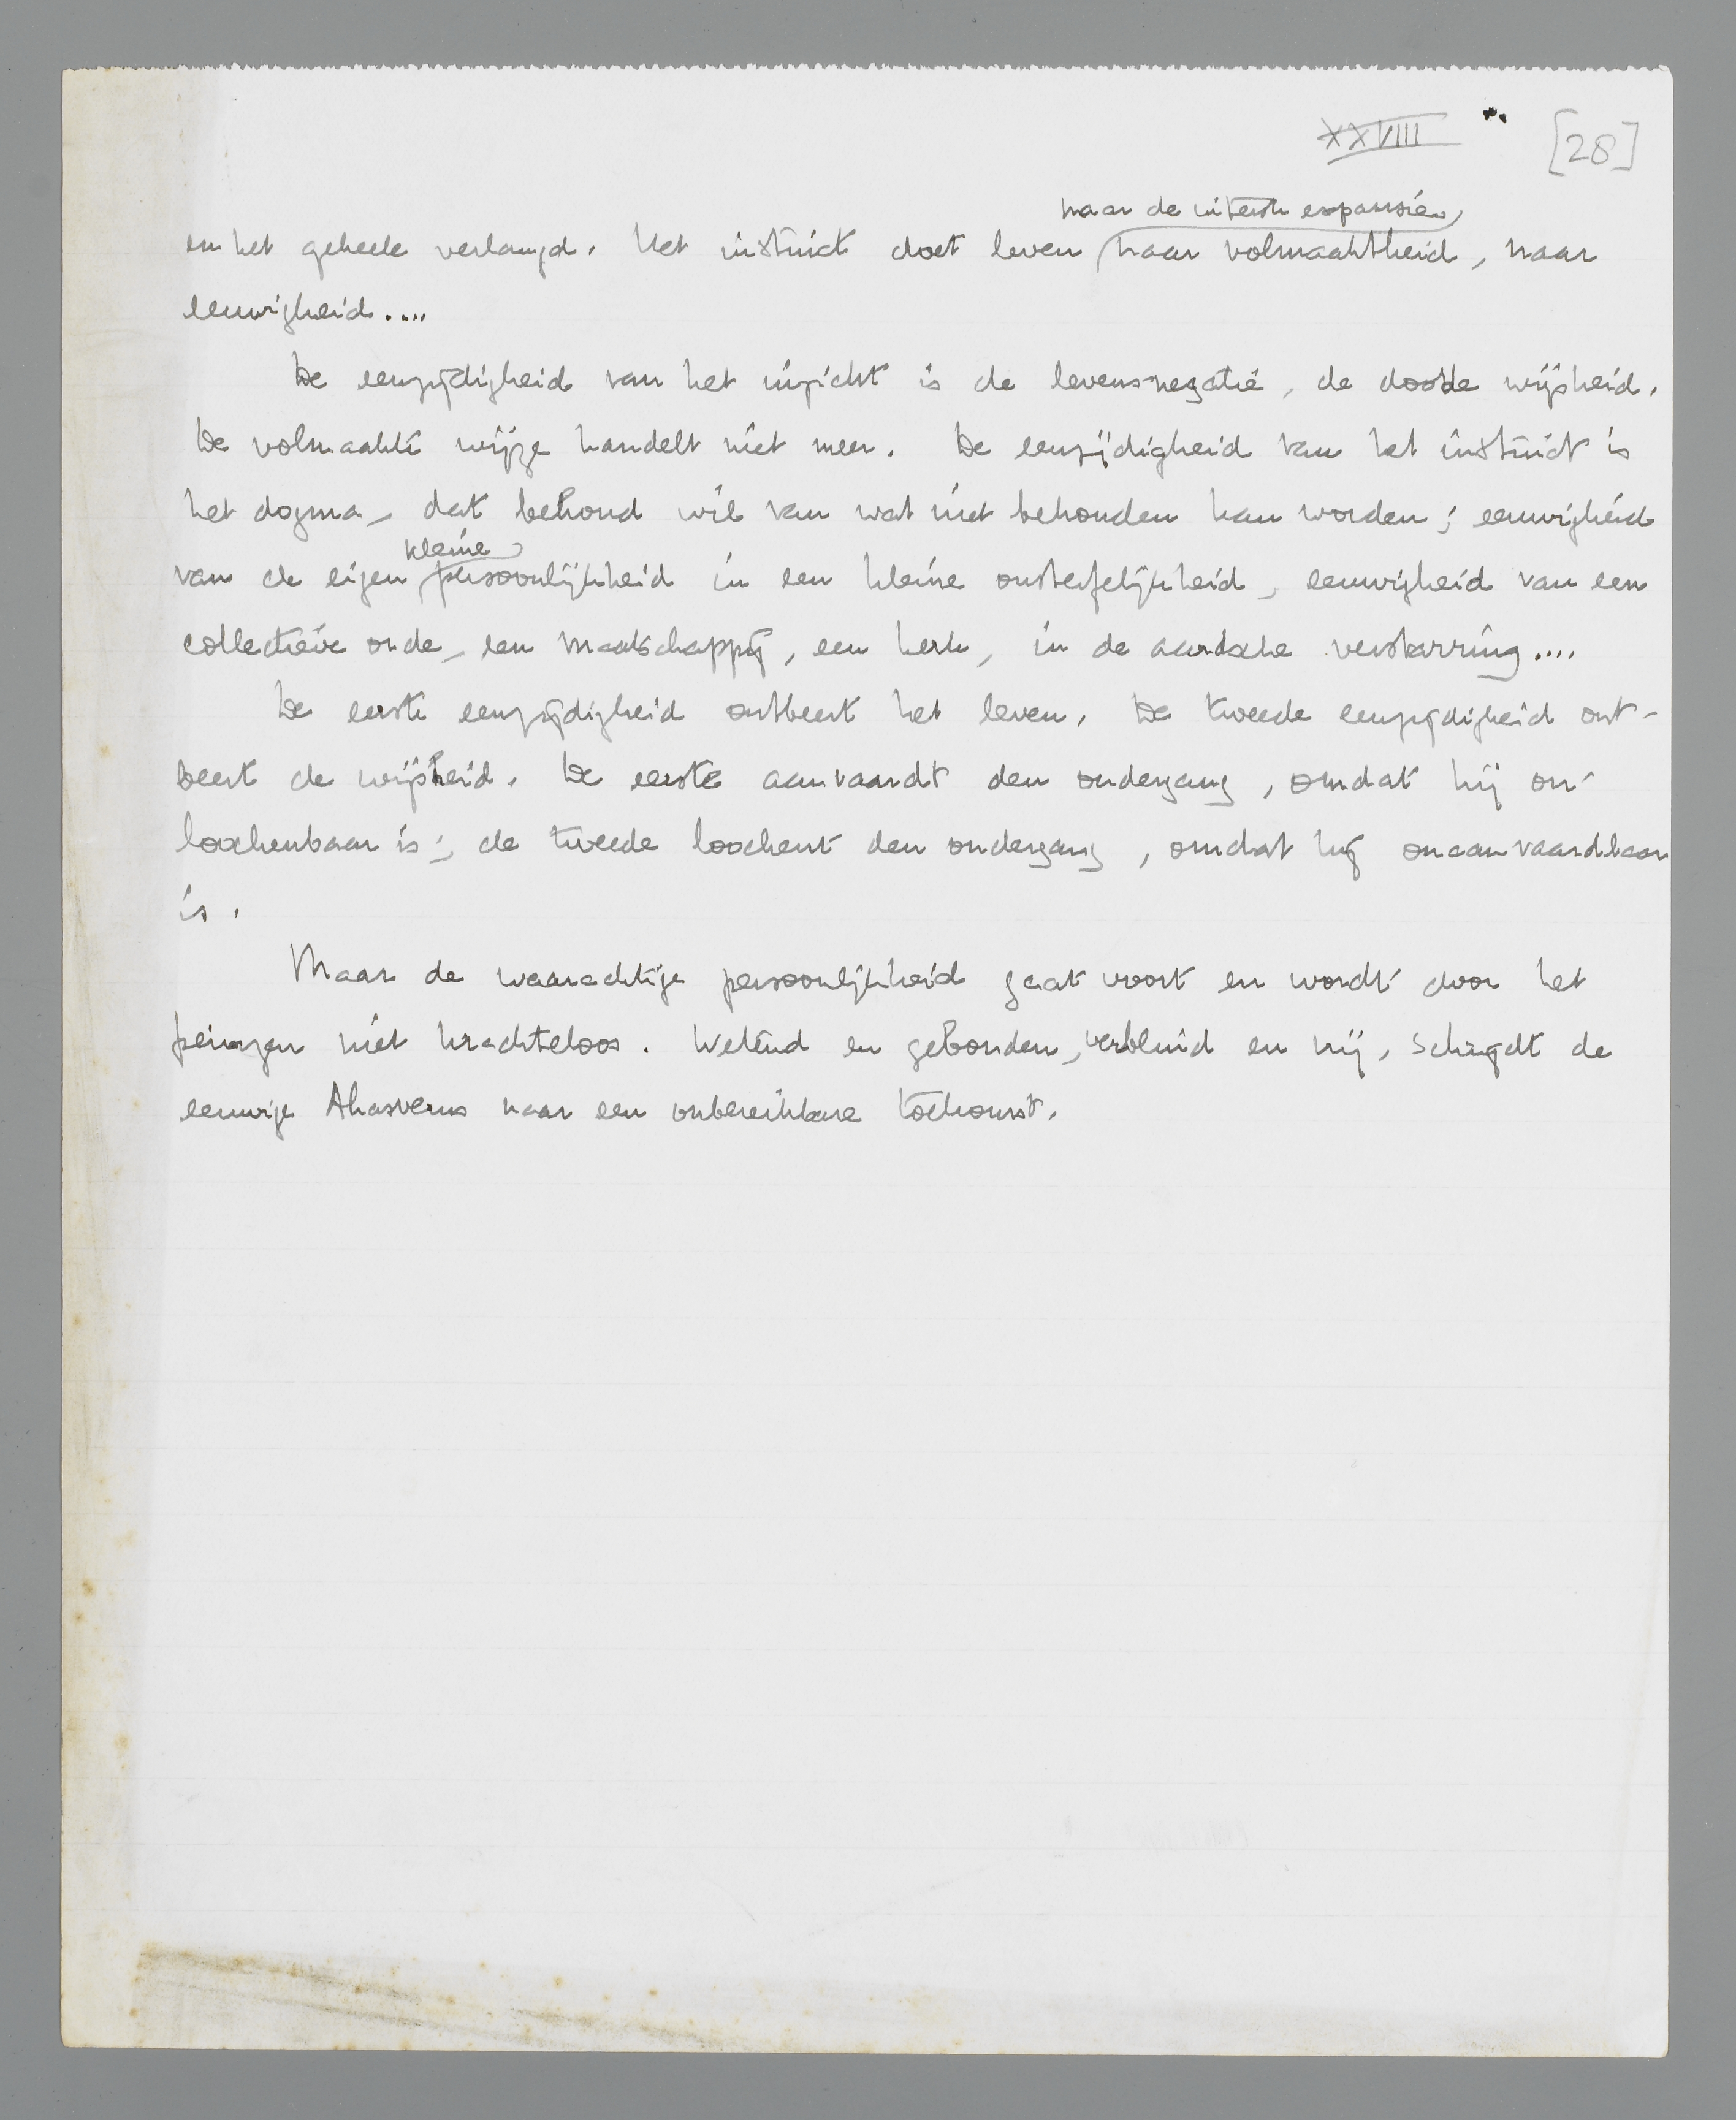 XXVIII
[28]
naar de uiterste expansie,
en het geheele verlangd. Het instinct doet leven naar volmaaktheid, naar
eeuwigheid....
De eenzijdigheid van het inzicht is de levensnegatie, de doode wijsheid.
De volmaakte wijze handelt niet meer. De eenzijdigheid van het instinct is
het dogma, dat behoud wil van wat niet behouden kan worden; eeuwigheid
kleine
van de eigen persoonlijkheid in een kleine onsterfelijkheid, eeuwigheid van een
collectieve orde, een maatschappij, een kerk, in de aardsche verstarring....
De eerste eenzijdigheid ontbeert het leven. De tweede eenzijdigheid ont-
beert de wijsheid. De eerste aanvaardt den ondergang, omdat hij on-
loochenbaar is; de tweede loochent den ondergang, omdat hij onaanvaardbaar
is.
Maar de waarachtige persoonlijkheid gaat voort en wordt door het
peinzen niet krachteloos. Wetend en gebonden, verblind en vrij, schrijdt de
eeuwige Ahasverus naar een onbereikbare toekomst.